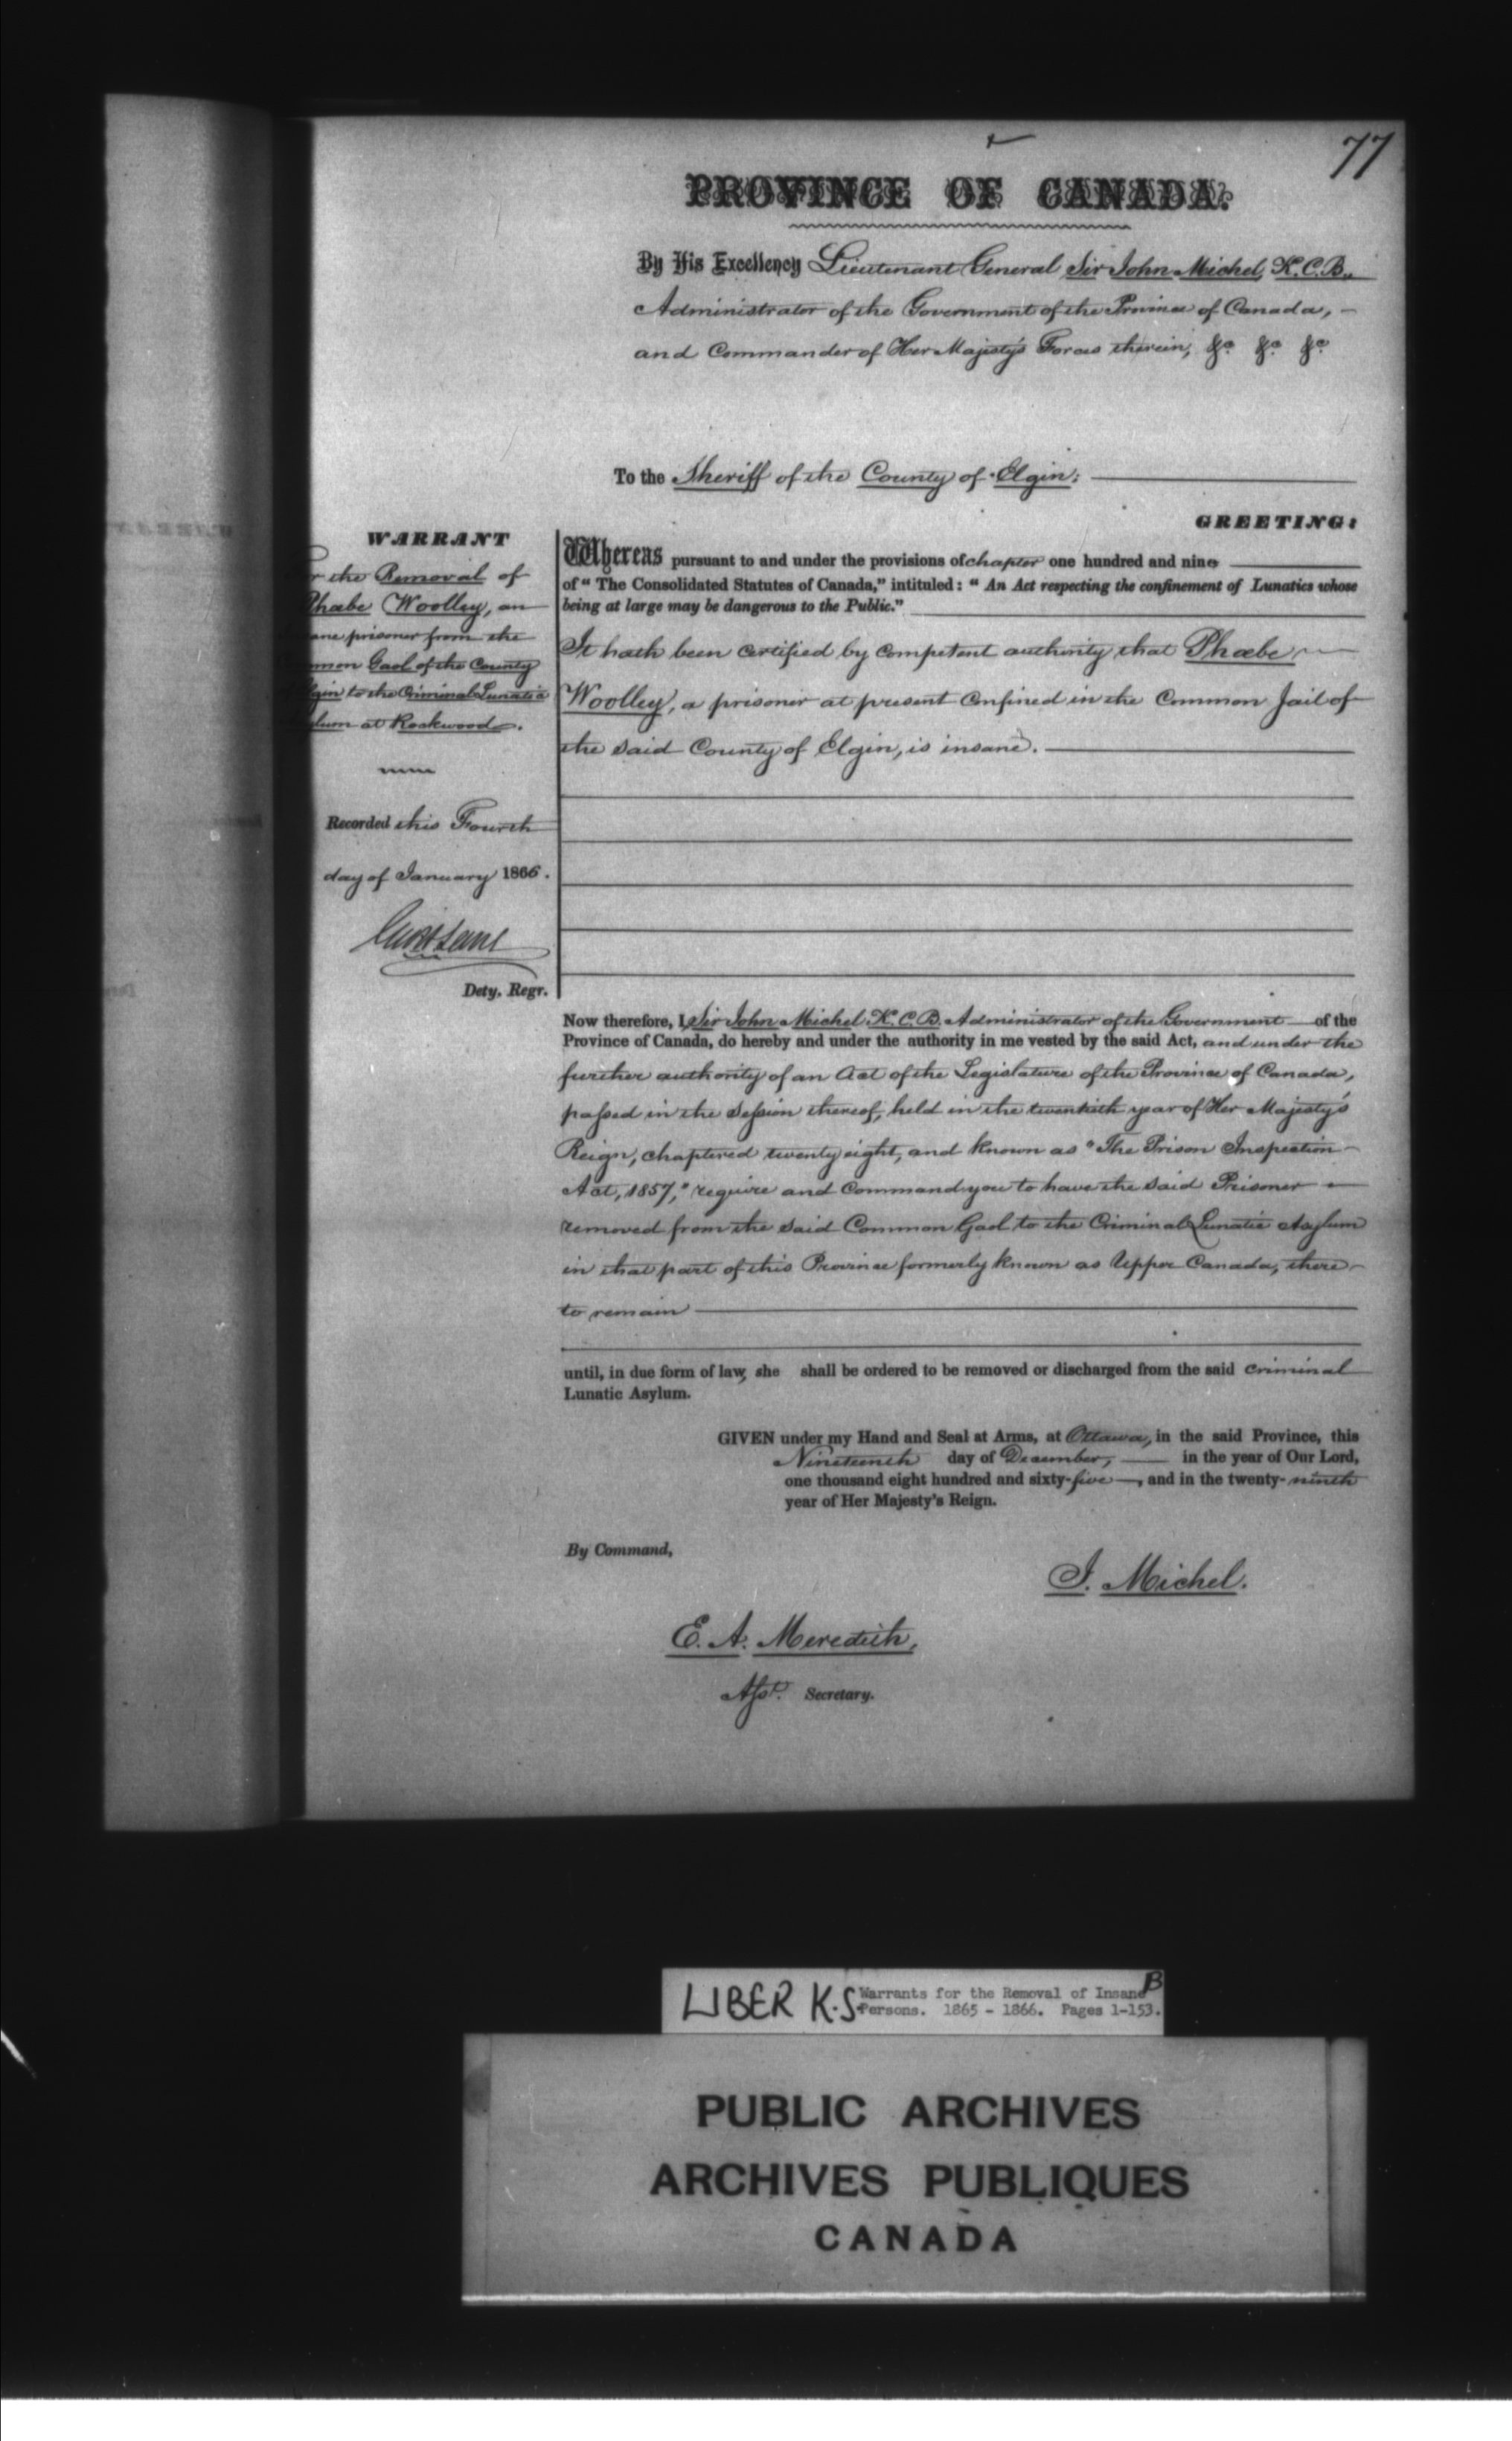 77
PROVINCE OF CANADA.
By His Excellency Lieutenant General Sir John Michel, K.C.B.,
Administrator of the Government of the Province of Canada,
and Commander of Her Majesty's Forces therein, &c &c &c
To the Sheriff of the County of Elgin:
GREETING:
WARRANT
r the Removal of
Phœbe Woolley, an
ane prisoner from the
mmon Gaol of the County
lgin to the Criminal Lunatic
ylum at Rockwood.
Recorded this Fourth
day of January 1866.
Dety. Regr.
Whereas pursuant to and under the provisions of chapter one hundred and nine
of "The Consolidated Statutes of Canada," intituled: "An Act respecting the confinement of Lunatics whose
being at large may be dangerous to the Public."
It hath been certified by competent authority that Phœbe
Woolley, a prisoner at present confined in the Common Jail of
the said County of Elgin, is insane.
Now therefore, I, Sir John Michel, K.C.B. Administrator of the Government of the
Province of Canada, do hereby and under the authority in me vested by the said Act, and under the
further authority of an Act of the Legislature of the Province of Canada,
passed in the Session thereof, held in the twentieth year of Her Majesty's
Reign, chaptered twenty eight, and known as "The Prison Inspection
Act, 1857," require and command you to have the said Prisoner
removed from the said Common Gaol to the Criminal Lunatic Asylum
in that part of this Province formerly known as Upper Canada, there
to remain
until, in due form of law, she shall be ordered to be removed or discharged from the said Criminal
Lunatic Asylum.
GIVEN under my Hand and Seal at Arms, at Ottawa, in the said Province, this
Nineteenth day of December, in the year of Our Lord,
one thousand eight hundred and sixty-five, and in the twenty-ninth
year of Her Majesty's Reign.
By Command,
J. Michel.
E. A. Meredith,
Asst. Secretary.
LIBER K.S. Warrants for the Removal of Insane B
Persons. 1865 - 1866. Pages 1-153.
PUBLIC ARCHIVES
ARCHIVES PUBLIQUES
CANADA